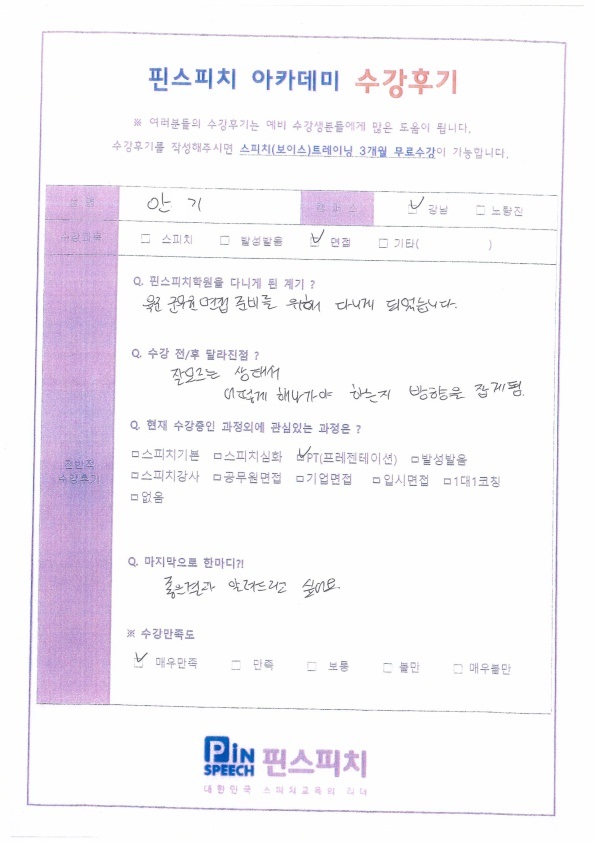 핀스피치 아카데미 수강후기
※ 여러분들의 수강후기는 예비 수강생분들에게 많은 도움이 됩니다.
수강후기를 작성해주시면 스피치(보이스)트레이닝 3개월 무료수강이 가능합니다.
성 명 안 기 캠 퍼 스 ☑ 강남 □ 노량진
수강과목 □ 스피치 □ 발성발음 ☑ 면접 □ 기타( )
Q. 핀스피치학원을 다니게 된 계기 ?
육군 군무원 면접 준비를 위해 다니게 되었습니다.
Q. 수강 전/후 달라진점 ?
잘모르는 상태서
어떻게 해나가야 하는지 방향을 잡게됨.
Q. 현재 수강중인 과정외에 관심있는 과정은 ?
□스피치기본 □스피치심화 ☑PT(프레젠테이션) □발성발음
전반적 수강후기
□스피치강사 □공무원면접 □기업면접 □입시면접 □1대1코칭
□없음
Q. 마지막으로 한마디?!
좋은결과 알려드리고 싶어요.
※ 수강만족도
☑ 매우만족 □ 만족 □ 보통 □ 불만 □ 매우불만
PiN SPEECH 핀스피치
대한민국 스피치교육의 리더